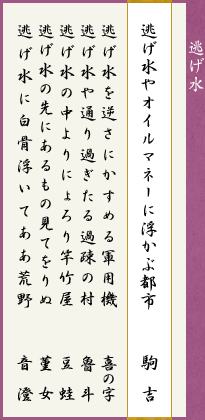 逃げ水
逃げ水やオイルマネーに浮かぶ都市　駒吉
逃げ水を逆さにかすめる軍用機　喜の字
逃げ水や通り過ぎたる過疎の村　魯斗
逃げ水の中よりにょろり竿竹屋　豆蛙
逃げ水の先にあるもの見てをりぬ　菫女
逃げ水に白骨浮いてああ荒野　音澄